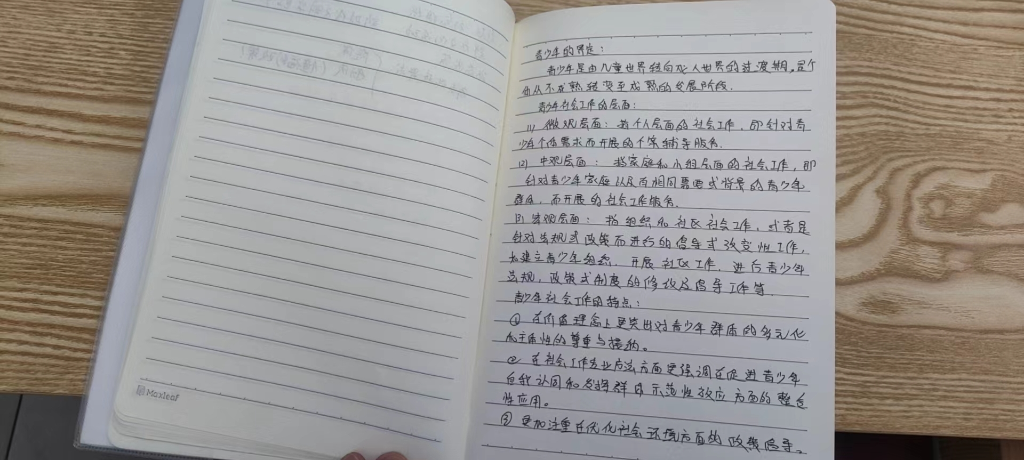 青少年的界定：
青少年是由儿童世界转向成人世界的过渡期，是个
体从不成熟转变至成熟的发展阶段。
青少年社会工作的层面：
(1) 微观层面：指个人层面的社会工作，即针对青
少年个体需求而开展的个案辅导服务。
(2) 中观层面：指家庭和小组层面的社会工作，即
针对青少年家庭以及有相同需要或背景的青少年
群体，而开展的社会工作服务。
(3) 宏观层面：指组织和社区社会工作，或者是
针对法规或政策而进行的倡导或改变性工作，
如建立青少年组织、开展社区工作、进行青少年
法规、政策或制度的修改及倡导工作等。
青少年社会工作的特点：
① 在价值理念上更突出对青少年群体的多元化
和主体性的尊重与接纳。
② 在社会工作专业方法方面更强调在促进青少年
自我认同和发挥群体示范性效应方面的整合
性应用。
③ 更加注重在优化社会环境方面的政策倡导。
Maxleaf